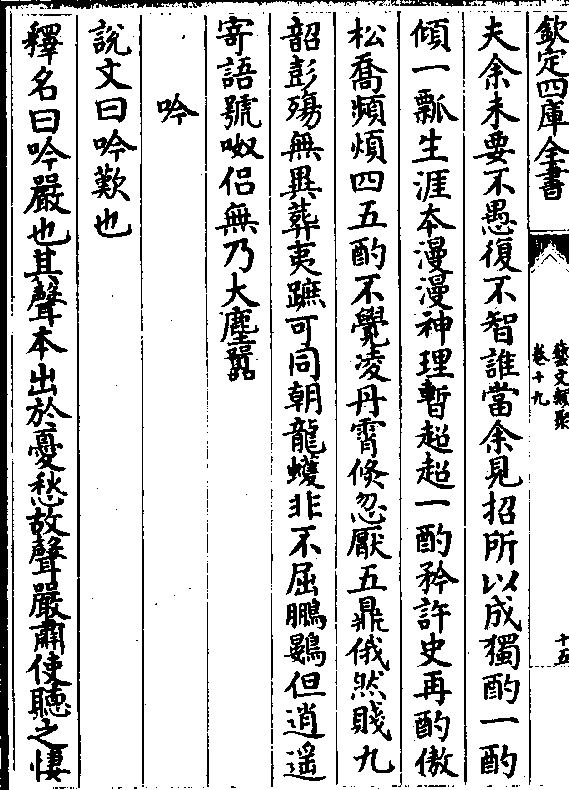 欽定四庫全書
藝文類聚
卷十九
十五
夫余未要不愚復不智誰當余見招所以成獨酌一酌
傾一瓢生涯本漫漫神理暫超超一酌矜許史再酌傲
松喬頻煩四五酌不覺凌丹霄倏忽厭五鼎俄然賤九
韶彭殤無異葬夷蹠可同朝龍蠖非不屈鵬鷃但逍遥
寄語號呶侣無乃大塵囂
吟
說文曰吟歎也
釋名曰吟嚴也其聲本出於憂愁故聲嚴肅使聽之悽